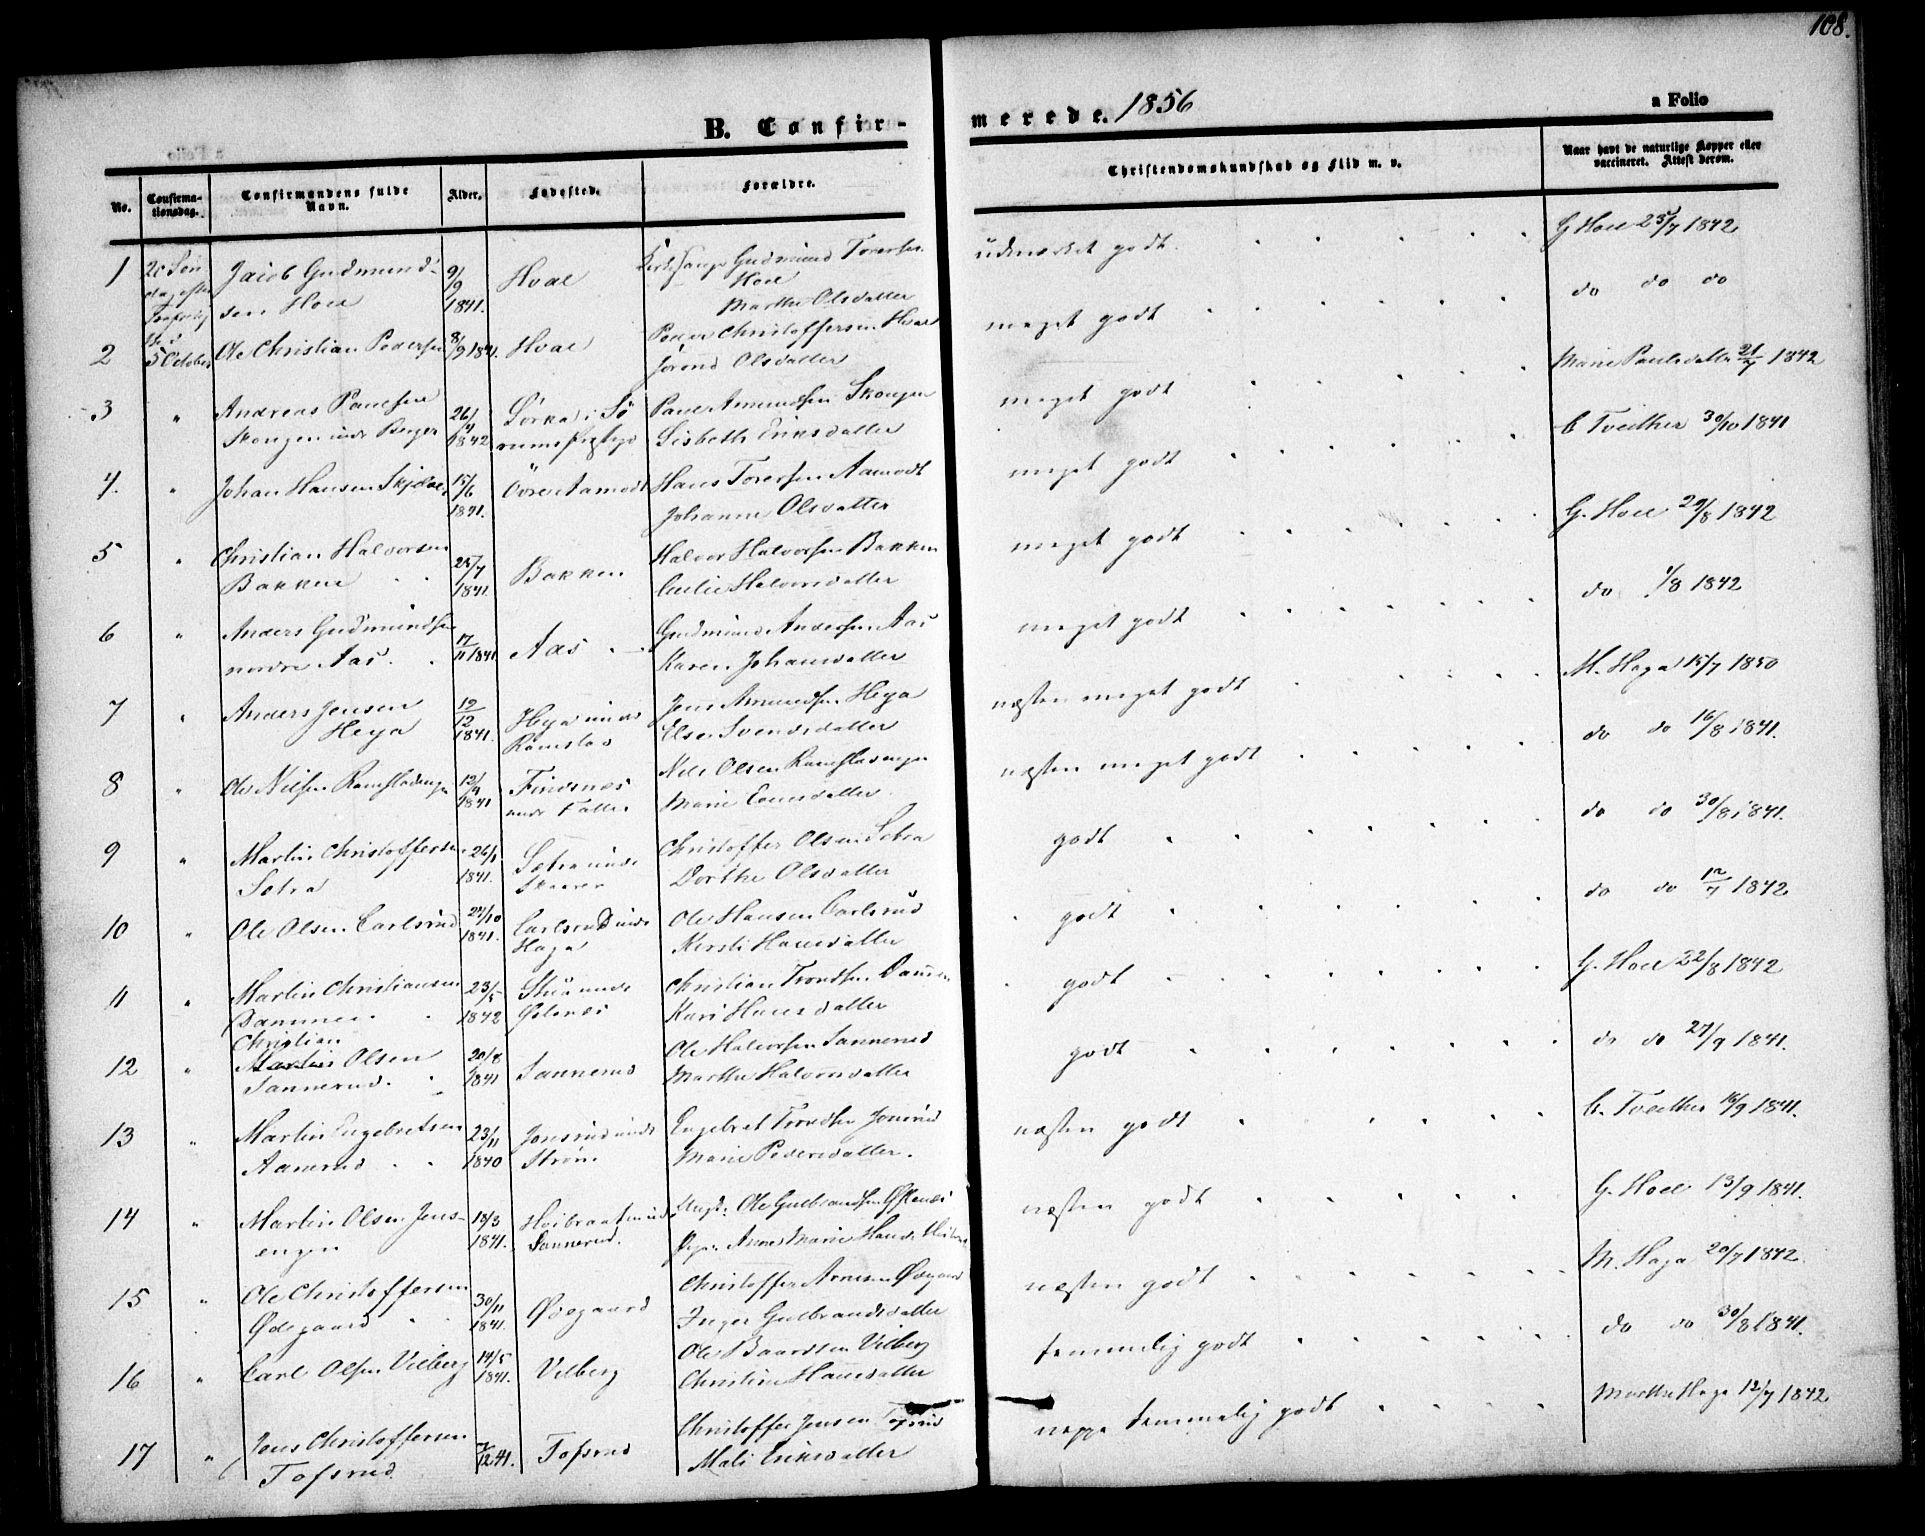 108.
B. Confir-
merede. 1856
a Folio
No.
Confirma-
tionsdag.
Confirmandens fulde
Navn.
Alder.
Fødested.
Forældre.
Christendomskundskab og Flid m. v.
Naar havt de naturlige Kopper eller
vaccineret. Attest derom.
1
Jacob Gudmund-
sen Hoel
9/9
1841.
Hval
Kirkesanger Gudmund Torersen
Hoel
Marthe Olsdatter
udmærket godt
G Hoel 25/7 1842
2
5 October
Ole Christian Pedersen
8/9 1841.
Hval
Peder Christoffersen Hval
Jørend Olsdatter
meget godt
do do do
3
"
Andreas Paulsen
Skongen unde Berger
26/4
1842
Sørka i Sø
rums Prgjld
Paul Amundsen Skongen
Lisbeth Eriksdatter
meget godt
Marie Paulsdatter 21/7 1842
4.
"
Johan Hansen Skjælle
15/6
1841.
Øvre Aamodt
Hans Torersen Aamodt
Johanne Olsdatter
meget godt
C Tveither 30/10 1841
5
"
Christian Halvorsen
Bakken
25/7
1841.
Bakken
Halvor Halvorsen Bakken
Cecilie Halvorsdatter
meget godt
G. Hoel 29/8 1842
6
"
Anders Gudmundsen
nordre Aas.
17/11 1841
Aas
Gudmund Andersen Aas
Karen Johansdatter
meget godt
do 1/8 1842
7
"
Anders Jensen
Heya
19/12
1841.
Heya unde
Ramstad
Jens Amundsen Heya
Else Svendsdatter
næsten meget godt
M. Haga 15/7 1850
8
"
Ole Nilsen Ramstadengen
12/4
1841
Findsnes
unde Falle
Nils Olsen Ramstadengen
Marie Evensdatter
næsten meget godt
do do 16/8 1841.
9
"
Martin Christoffersen
Sætra
26/1
1841.
Sætra unde
Skaarer
Christoffer Olsen Sætra
Dorthe Olsdatter
godt
do do 30/8 1841.
10
"
Ole Olsen Carlsrud
27/10
1841.
Carlsrud unde
Haga
Ole Hansen Carlsrud
Kersti Hansdatter
godt
do do 12/7 1842
11
"
Martin Christiansen
Dammen
23/5
1842
Stua unde
Østenes
Christian Trondsen Dammen
Kari Hansdatter
godt
G. Hoel 22/8 1842
12
"
Christian
Martin Olsen
Sannerud.
20/8
1841
Sannerud
Ole Halvorsen Sannerud
Marthe Halvorsdatter
godt
do do 27/9 1841.
13
"
Martin Engebretsen
Aamrud
23/11
1840
Jonsrud unde
Strøm
Engebret Trondsen Jonsrud
Marie Pedersdatter.
næsten godt
C. Tveither 16/9 1841.
14
"
Martin Olsen Jens-
engen
18/3
1841.
Høibraaten unde
Sannerud.
Ungk: Ole Gulbrandsen Østenes
Pige: Anne Marie Hansd.
næsten godt
G. Hoel 13/9 1841.
15
"
Ole Christoffersen
Ødegaard
30/11
1841.
Ødegaard
Christoffer Arnesen Ødegaard
Inger Gulbrandsdatter
næsten godt
M. Haga 20/7 1842
16
"
Carl Olsen Vilberg
14/5
1841.
Vilberg
Ole Baardsen Vilberg
Christine Hansdatter
temmelig godt
do do 30/8 1841.
17
"
Jens Christoffersen
Tofsrud
7/12 41.
Tofsrud
Christoffer Jensen Tofsrud
Mali Eriksdatter
neppe temmelig godt
Marthe Haga 12/7 1842